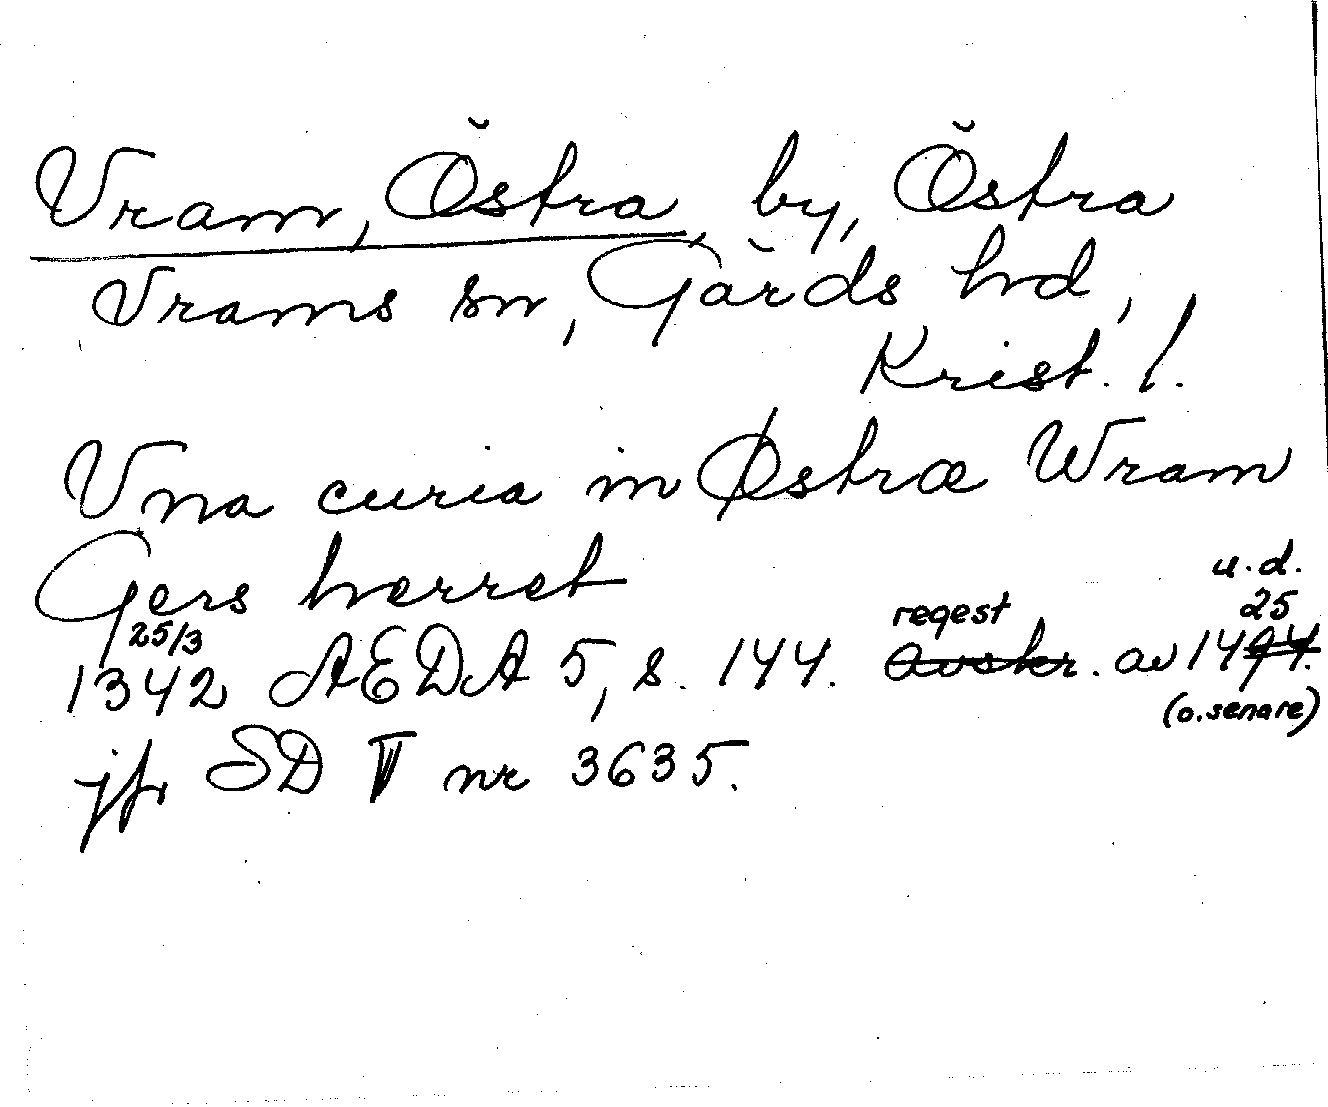 Vram, Östra, by, Östra
Vrams sn, Gärds hd,
Krist. l.
Vna curia in Østræ Wram
Gers herret
u.d.
25/3 regest 25
1342 AEDA 5, s. 144. avskr. av 1494.
(o. senare)
jfr SD V nr 3635.